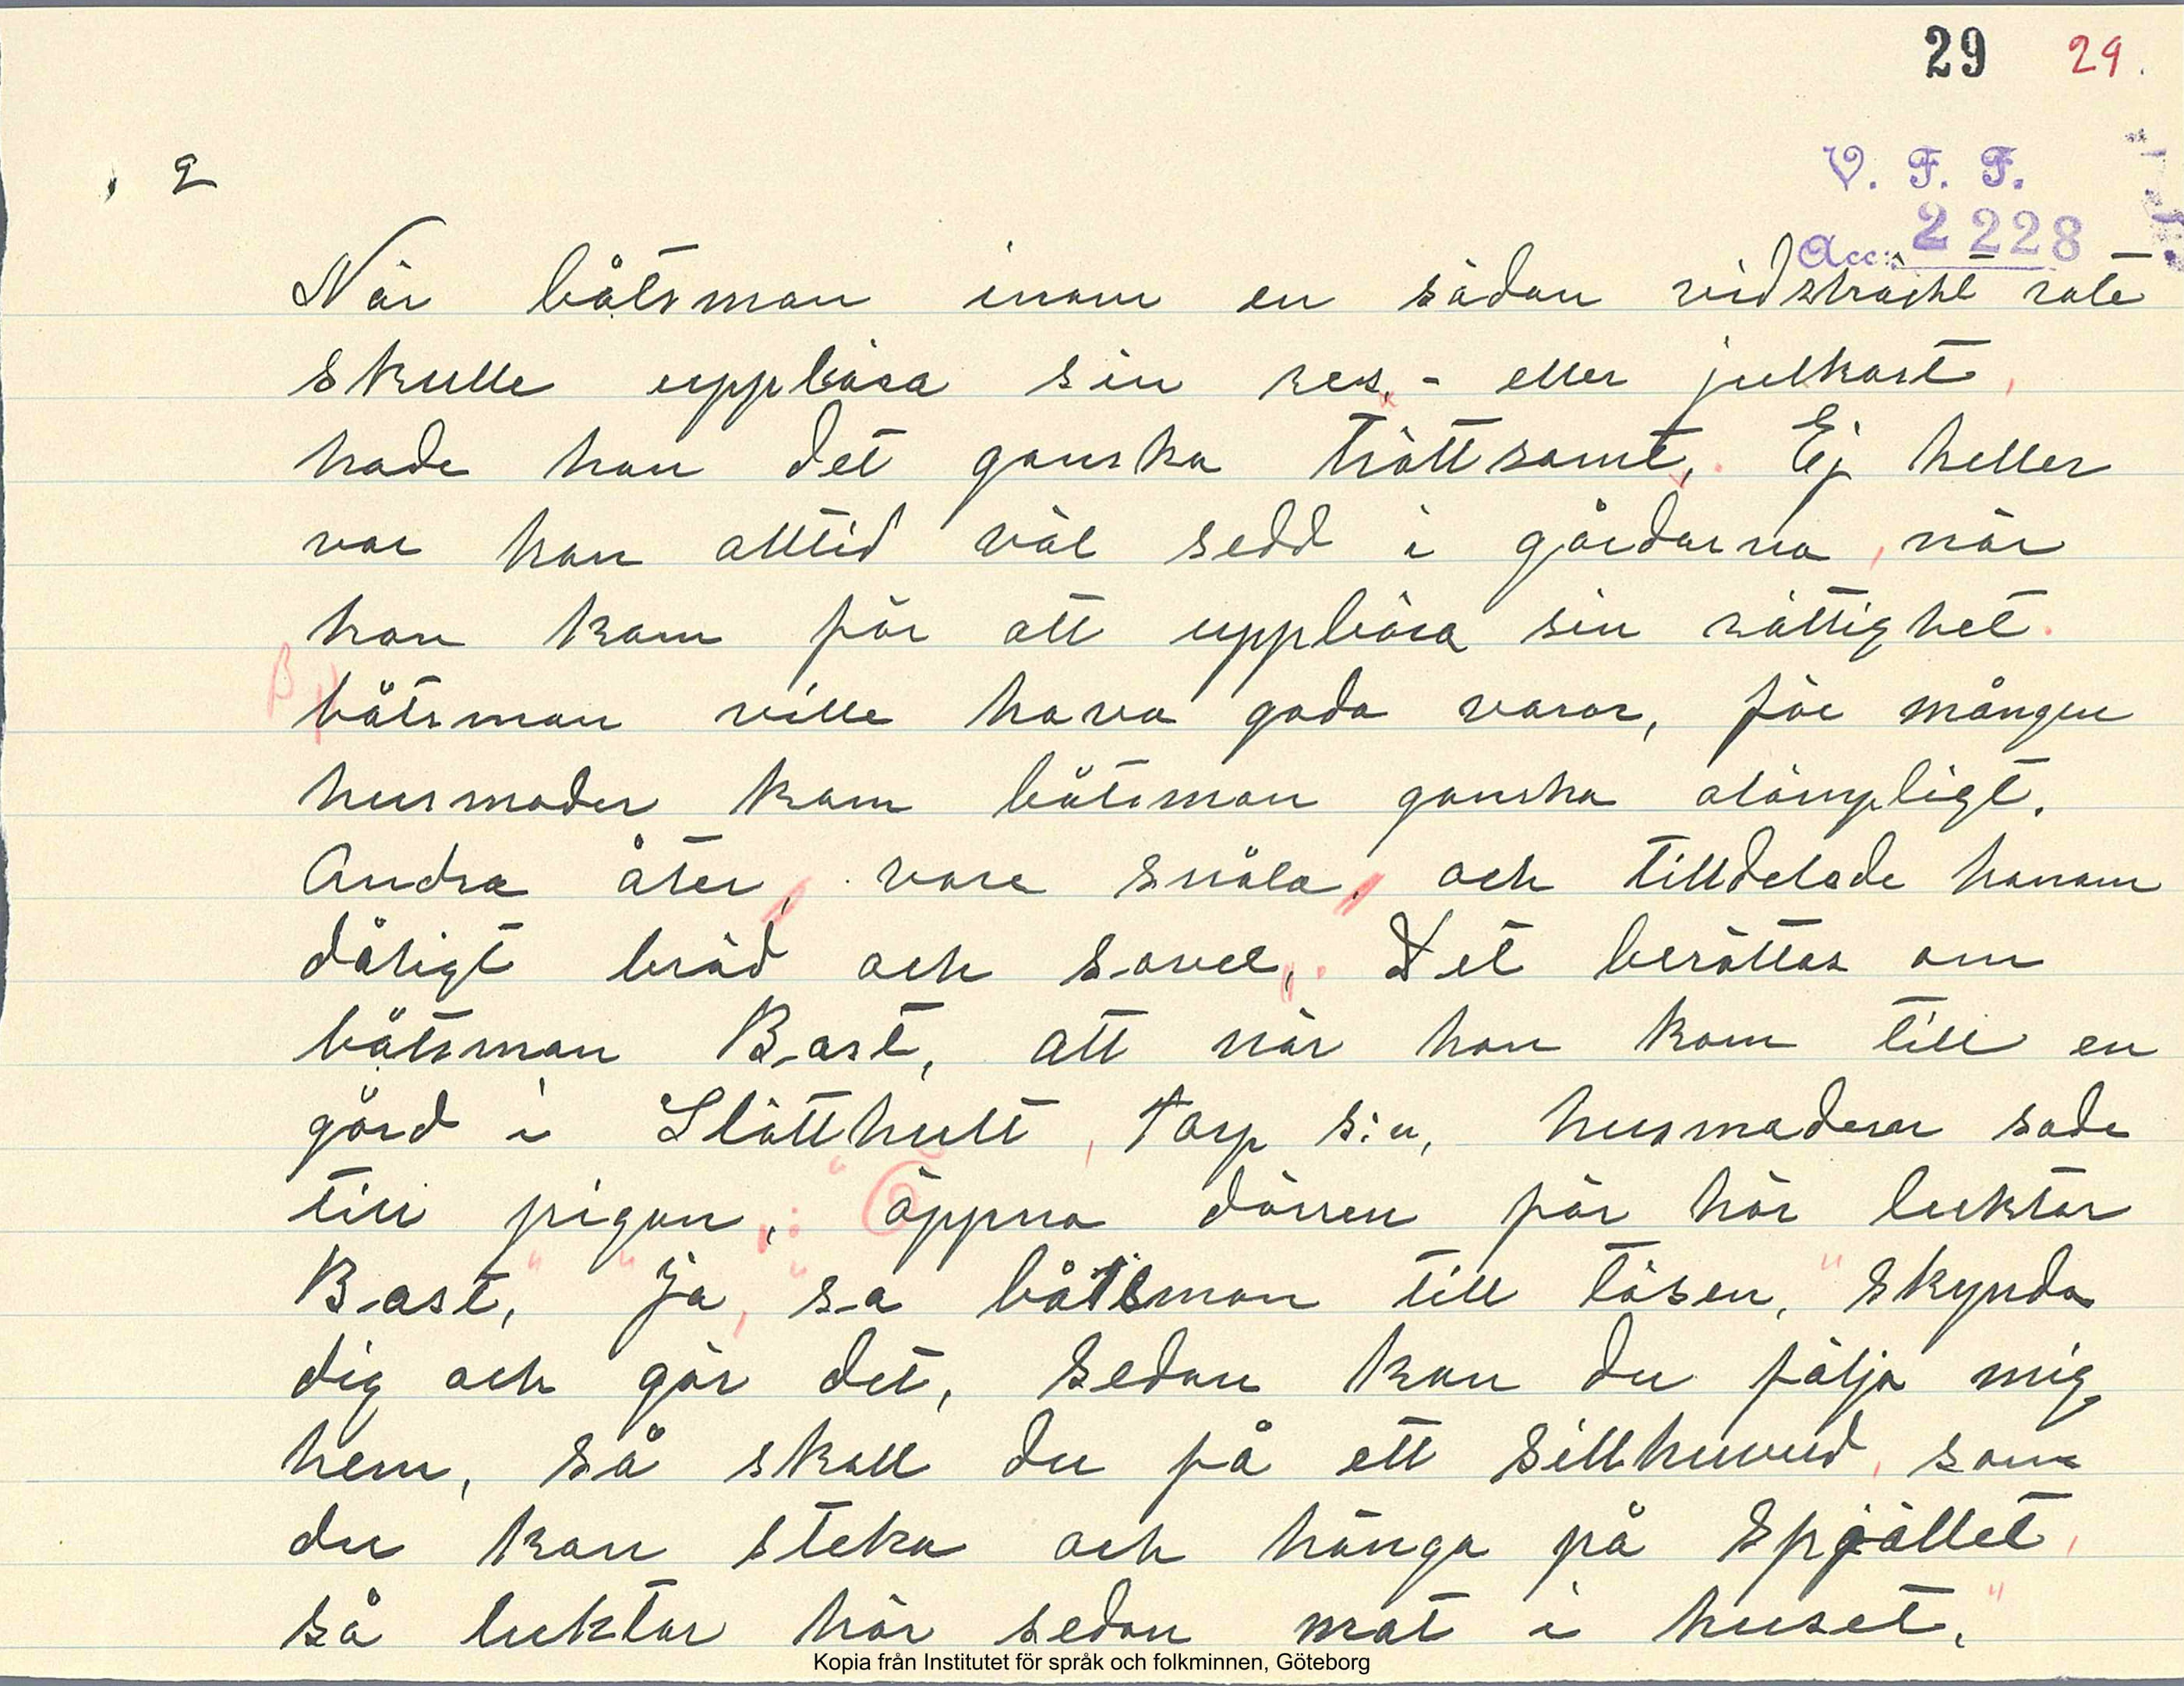 29 29.
2
V. F. F.
Acc: 2228
När båtsman inom en sådan vidsträckt rote
skulle uppbära sin res- eller julkost,
hade han det ganska tröttsamt. Ej heller
var han alltid väl sedd i gårdarna, när
han kom för att uppbära sin rättighet.
Båtsman ville hava goda varor, för mången
husmoder kom båtsman ganska olämpligt.
Andra åter, vore snåla, och tilldelade honom
dåligt bröd och sovel. Det berättas om
båtsman Bast, att när han kom till en
gård i Slätthult, Tarp s:n, husmodern sade
till pigan: "Öppna dörren för här luktar
Bast," "Ja," sa båtsman till tösen, "skynda
dig och gör det, sedan kan du följa mig
hem, så skall du få ett sillhuvud, som
du kan steka och hänga på spjället,
så luktar här sedan mat i huset."
Kopia från Institutet för språk och folkminnen, Göteborg